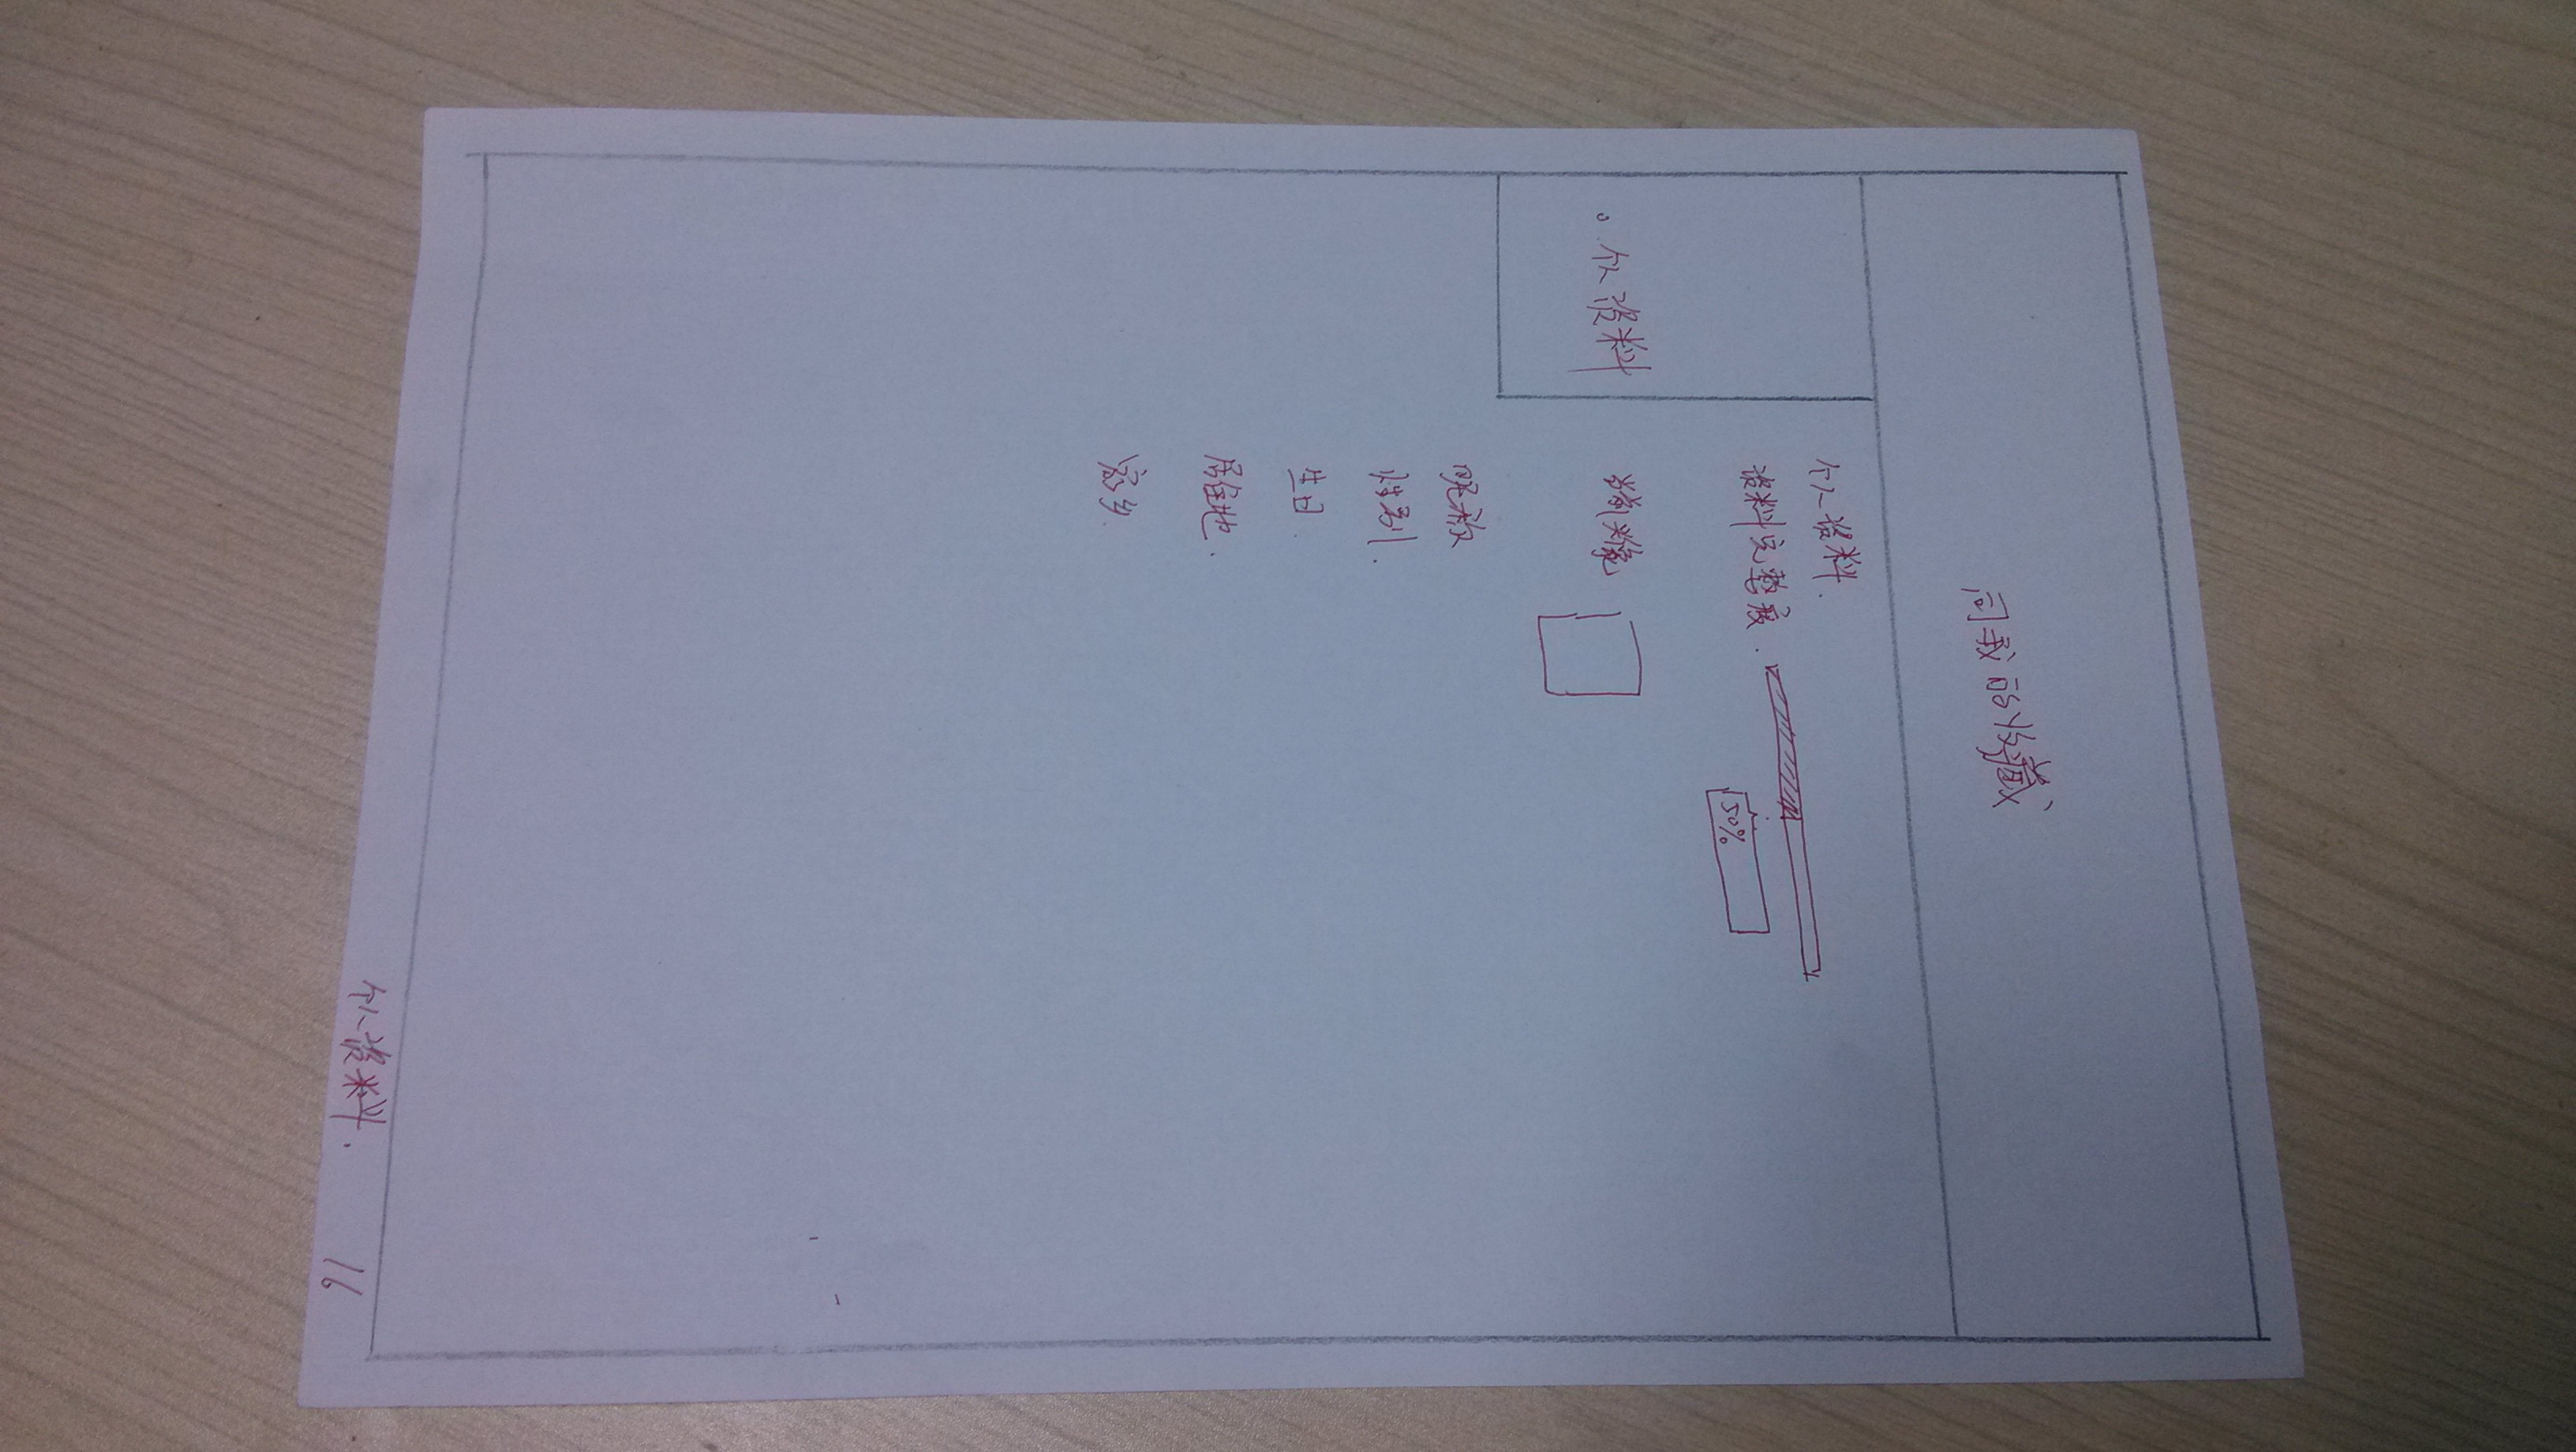 同我的收藏
个人资料
个人资料
资料完整度
50%
当前头像
昵称
性别
生日
居住地
家乡
个人资料
16